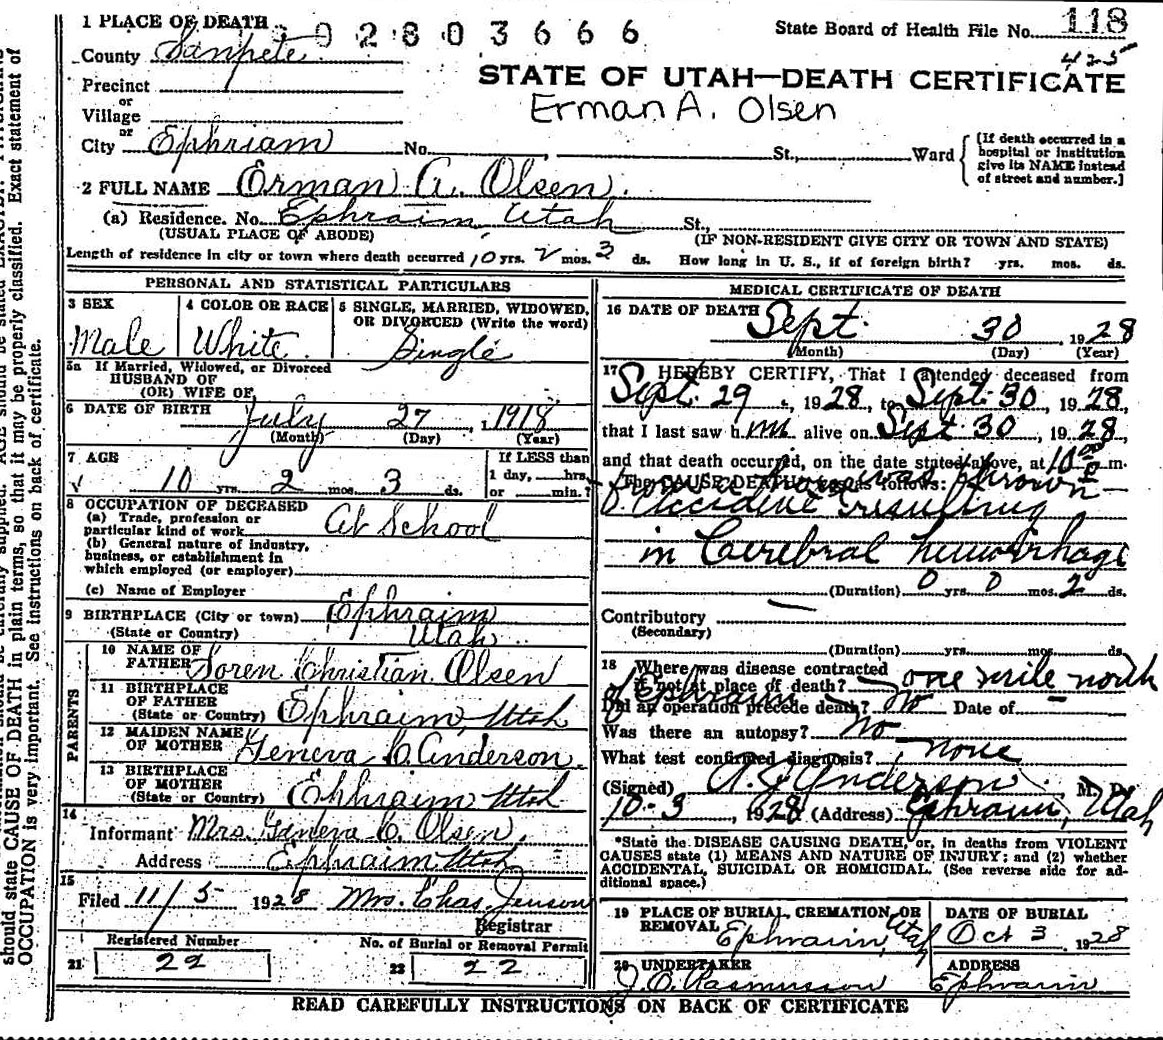 1 PLACE OF DEATH
02803666
State Board of Health File No. 118
County Sanpete
425
STATE OF UTAH—DEATH CERTIFICATE
Precinct
or
Village
Erman A. Olsen
or
City Ephriam No. , St., Ward
{If death occurred in a hospital or institution give its NAME instead of street and number.]
2 FULL NAME Erman A. Olsen.
(a) Residence. No. Ephraim, Utah St.,
(USUAL PLACE OF ABODE) (IF NON-RESIDENT GIVE CITY OR TOWN AND STATE)
Length of residence in city or town where death occurred 10 yrs. 2 mos. 3 ds. How long in U. S., if of foreign birth? yrs. mos. ds.
PERSONAL AND STATISTICAL PARTICULARS
3 SEX
Male
4 COLOR OR RACE
White
5 SINGLE, MARRIED, WIDOWED, OR DIVORCED (Write the word)
Single
5a If Married, Widowed, or Divorced
HUSBAND OF
(OR) WIFE OF
6 DATE OF BIRTH July 27, 1918
(Month) (Day) (Year)
7 AGE
10 yrs. 2 mos. 3 ds.
If LESS than
1 day, hrs.
or min.?
8 OCCUPATION OF DECEASED
(a) Trade, profession or
particular kind of work At School
(b) General nature of industry,
business, or establishment in
which employed (or employer)
(c) Name of Employer
9 BIRTHPLACE (City or town) Ephraim
(State or Country) Utah
PARENTS
10 NAME OF
FATHER Soren Christian Olsen
11 BIRTHPLACE
OF FATHER
(State or Country) Ephraim Utah
12 MAIDEN NAME
OF MOTHER Geneva C. Anderson.
13 BIRTHPLACE
OF MOTHER
(State or Country) Ephraim Utah
14
Informant Mrs. Geneva C. Olsen,
Address Ephraim Utah
15
Filed 11/5 1928 Mrs. Chas. Jenson
Registrar
Registered Number
21 22
No. of Burial or Removal Permit
22 22
MEDICAL CERTIFICATE OF DEATH
16 DATE OF DEATH Sept. 30, 1928
(Month) (Day) (Year)
17 I HEREBY CERTIFY, That I attended deceased from
Sept. 29, 1928, to Sept. 30, 1928,
that I last saw him alive on Sept 30, 1928,
and that death occurred, on the date stated above, at 10 m.
The CAUSE OF DEATH was as follows:
from a horse was thrown
Accident resulting
in Caerebral hemorrhage
(Duration) 0 yrs. 0 mos. 2 ds.
Contributory
(Secondary)
(Duration) yrs. mos. ds.
18 Where was disease contracted
if not at place of death? one mile north
of Ephraim
Did an operation precede death? No Date of
Was there an autopsy? No
What test confirmed diagnosis? none
(Signed) A. J. Anderson, M. D.
10-3 1928 (Address) Ephraim, Utah
*State the DISEASE CAUSING DEATH, or, in deaths from VIOLENT
CAUSES state (1) MEANS AND NATURE OF INJURY; and (2) whether
ACCIDENTAL, SUICIDAL OR HOMICIDAL. (See reverse side for ad-
ditional space.)
19 PLACE OF BURIAL, CREMATION, OR
REMOVAL Ephraim, Utah
DATE OF BURIAL
Oct 3 1928
20 UNDERTAKER
J. O. Rasmusson
ADDRESS
Ephraim
READ CAREFULLY INSTRUCTIONS ON BACK OF CERTIFICATE
should state CAUSE OF DEATH in plain terms, so that it may be properly classified. Exact statement of
OCCUPATION is very important. See instructions on back of certificate.